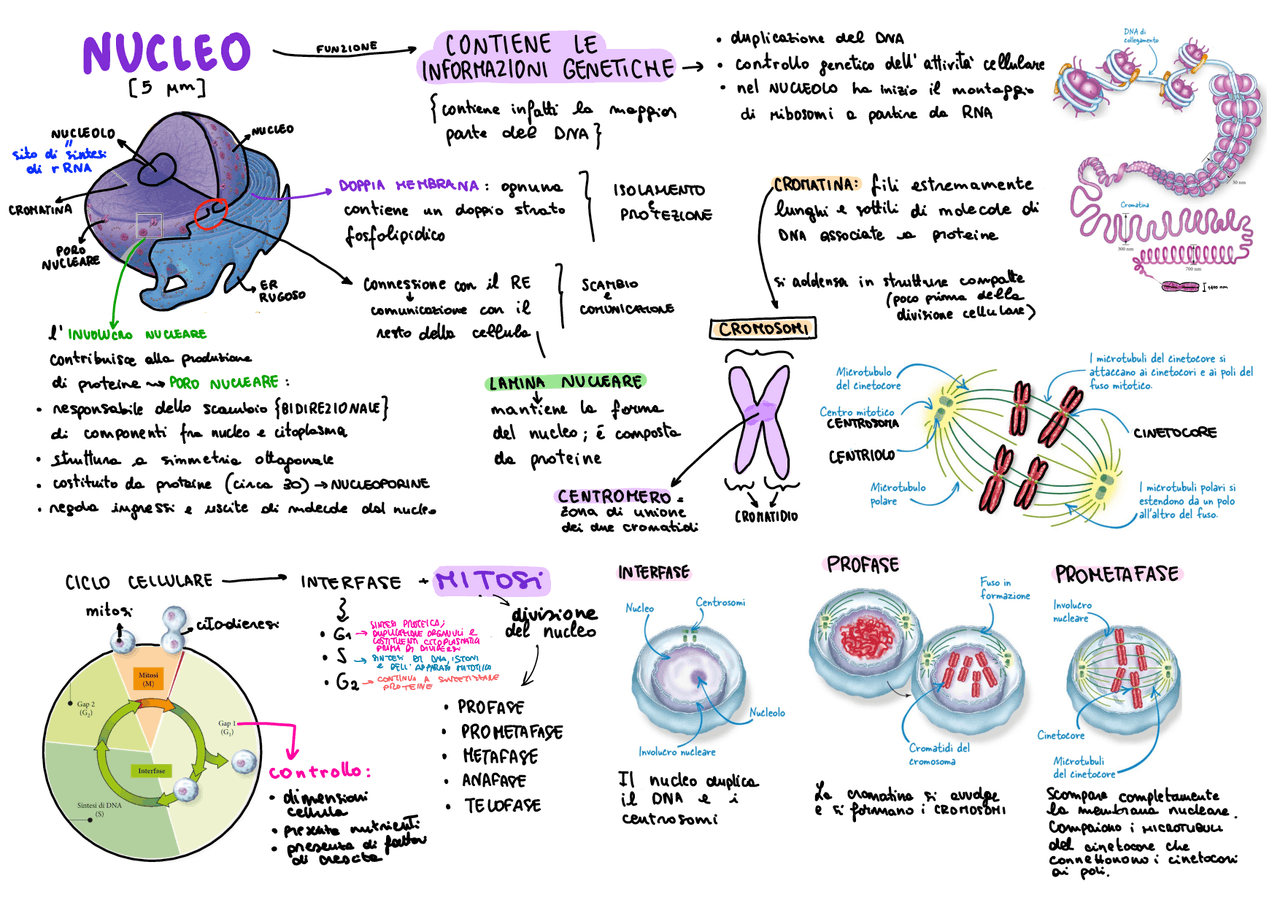 NUCLEO
[5 μm]
FUNZIONE
CONTIENE LE
INFORMAZIONI GENETICHE
{contiene infatti la maggior
parte del DNA}
• duplicazione del DNA
• controllo genetico dell'attività cellulare
• nel NUCLEOLO ha inizio il montaggio
di ribosomi a partire da RNA
DNA di
collegamento
30 nm
Cromatina
300 nm
700 nm
1400 nm
NUCLEOLO
=
sito di sintesi
di rRNA
NUCLEO
CROMATINA
PORO
NUCLEARE
ER
RUGOSO
DOPPIA MEMBRANA: ognuna
contiene un doppio strato
fosfolipidico
ISOLAMENTO
e
PROTEZIONE
connessione con il RE
comunicazione con il
resto della cellula
SCAMBIO
e
COMUNICAZIONE
CROMATINA: fili estremamente
lunghi e sottili di molecole di
DNA associate a proteine
si addensa in strutture compatte
(poco prima della
divisione cellulare)
CROMOSOMI
CROMATIDIO
CENTROMERO =
zona di unione
dei due cromatidi
LAMINA NUCLEARE
mantiene la forma
del nucleo; é composta
da proteine
l'INVOLUCRO NUCLEARE
contribuisce alla produzione
di proteine → PORO NUCLEARE:
• responsabile dello scambio {BIDIREZIONALE}
di componenti fra nucleo e citoplasma
• struttura a simmetria ottagonale
• costituito da proteine (circa 30) → NUCLEOPORINE
• regola ingressi e uscite di molecole dal nucleo
Microtubulo
del cinetocore
Centro mitotico
CENTROSOMA
CENTRIOLO
Microtubulo
polare
I microtubuli del cinetocore si
attaccano ai cinetocori e ai poli del
fuso mitotico.
CINETOCORE
I microtubuli polari si
estendono da un polo
all'altro del fuso.
CICLO CELLULARE → INTERFASE + MITOSI
mitosi
citodieresi
Mitosi
(M)
Gap 2
(G₂)
Gap 1
(G₁)
Interfase
Sintesi di DNA
(S)
controllo:
• dimensioni
cellula
• presenza nutrienti
• presenza di fattori
di crescita
• G1 → SINTESI PROTEICA;
DUPLICAZIONE ORGANULI E
COSTITUENTI CITOPLASMATICI
PRIMA DI DIVIDERSI
• S → SINTESI DI DNA, ISTONI
E DELL'APPARATO MITOTICO
• G2 → CONTINUA A SINTETIZZARE
PROTEINE
divisione
del nucleo
• PROFASE
• PROMETAFASE
• METAFASE
• ANAFASE
• TELOFASE
INTERFASE
Nucleo
Centrosomi
Nucleolo
Involucro nucleare
Il nucleo duplica
il DNA e i
centrosomi
PROFASE
Fuso in
formazione
Cromatidi del
cromosoma
La cromatina si avvolge
e si formano i CROMOSOMI
PROMETAFASE
Involucro
nucleare
Cinetocore
Microtubuli
del cinetocore
Scompare completamente
la membrana nucleare.
Compaiono i MICROTUBULI
del cinetocore che
connettono i cinetocori
ai poli.